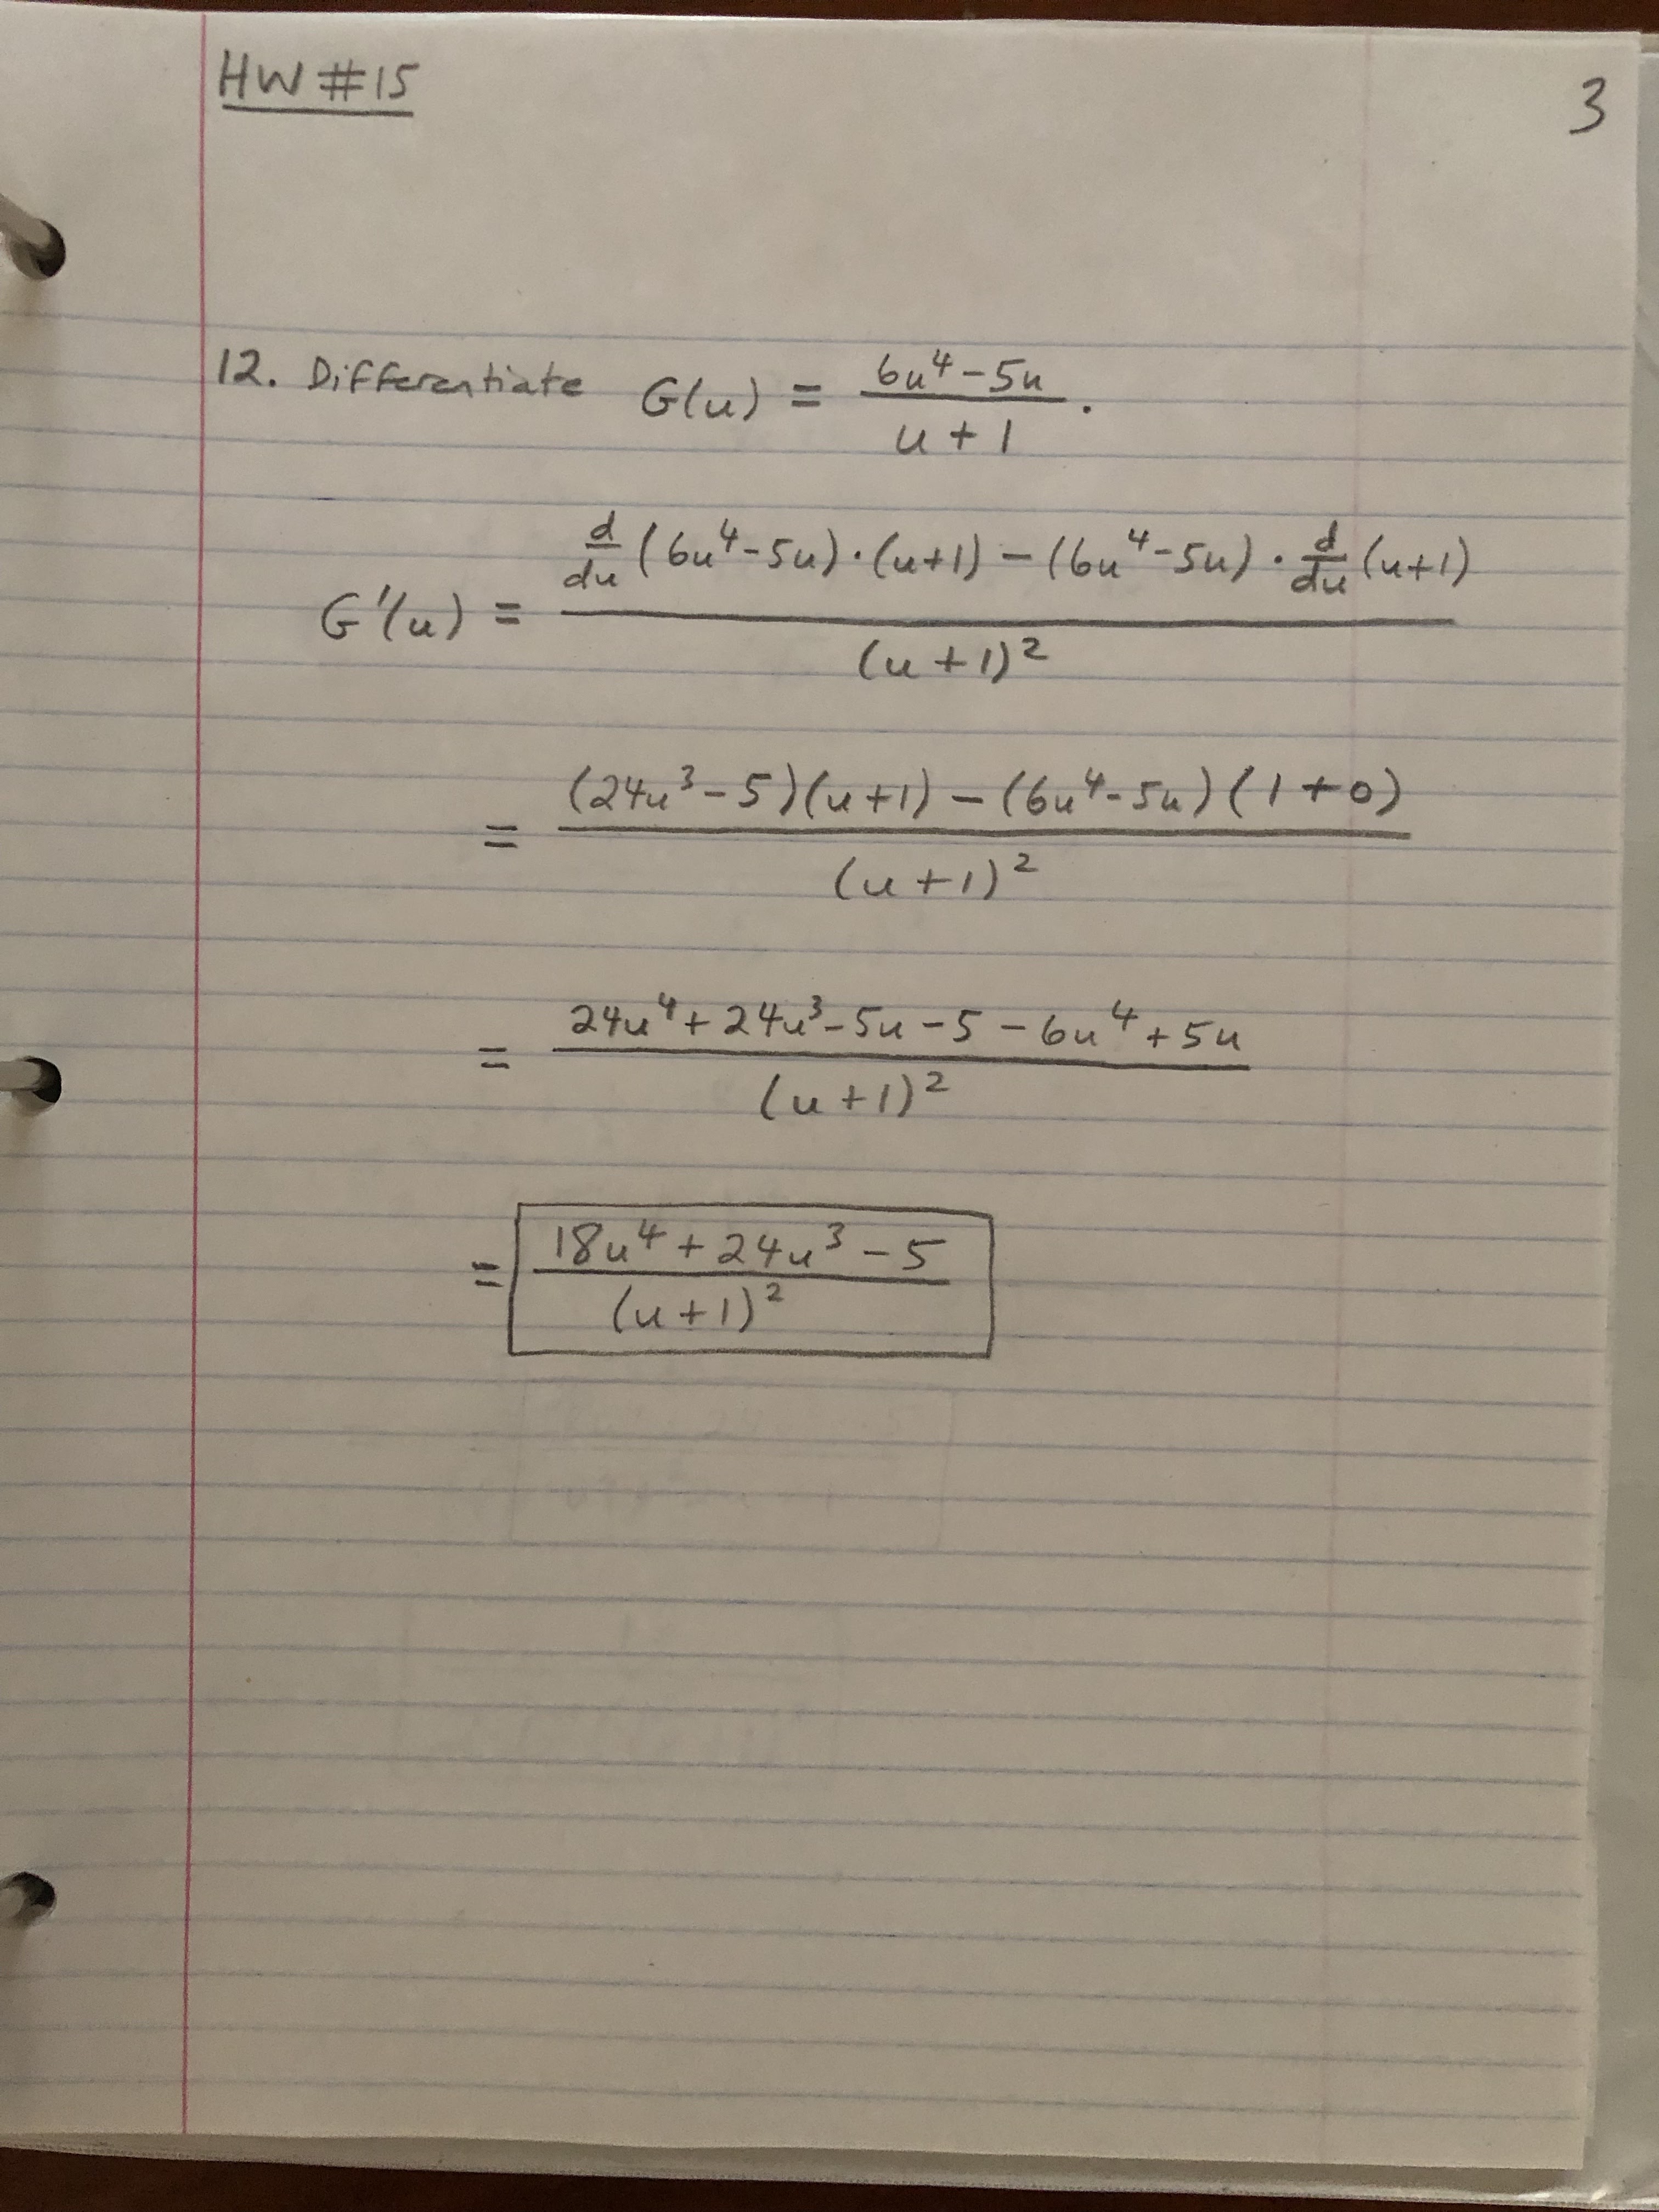 HW #15
3
12. Differentiate G(u) = (6u⁴-5u)/(u+1).
G'(u) = (d/du (6u⁴-5u)·(u+1) - (6u⁴-5u)·d/du (u+1))/(u+1)²
= ((24u³-5)(u+1) - (6u⁴-5u)(1+0))/(u+1)²
= (24u⁴+24u³-5u-5-6u⁴+5u)/(u+1)²
= (18u⁴+24u³-5)/(u+1)²